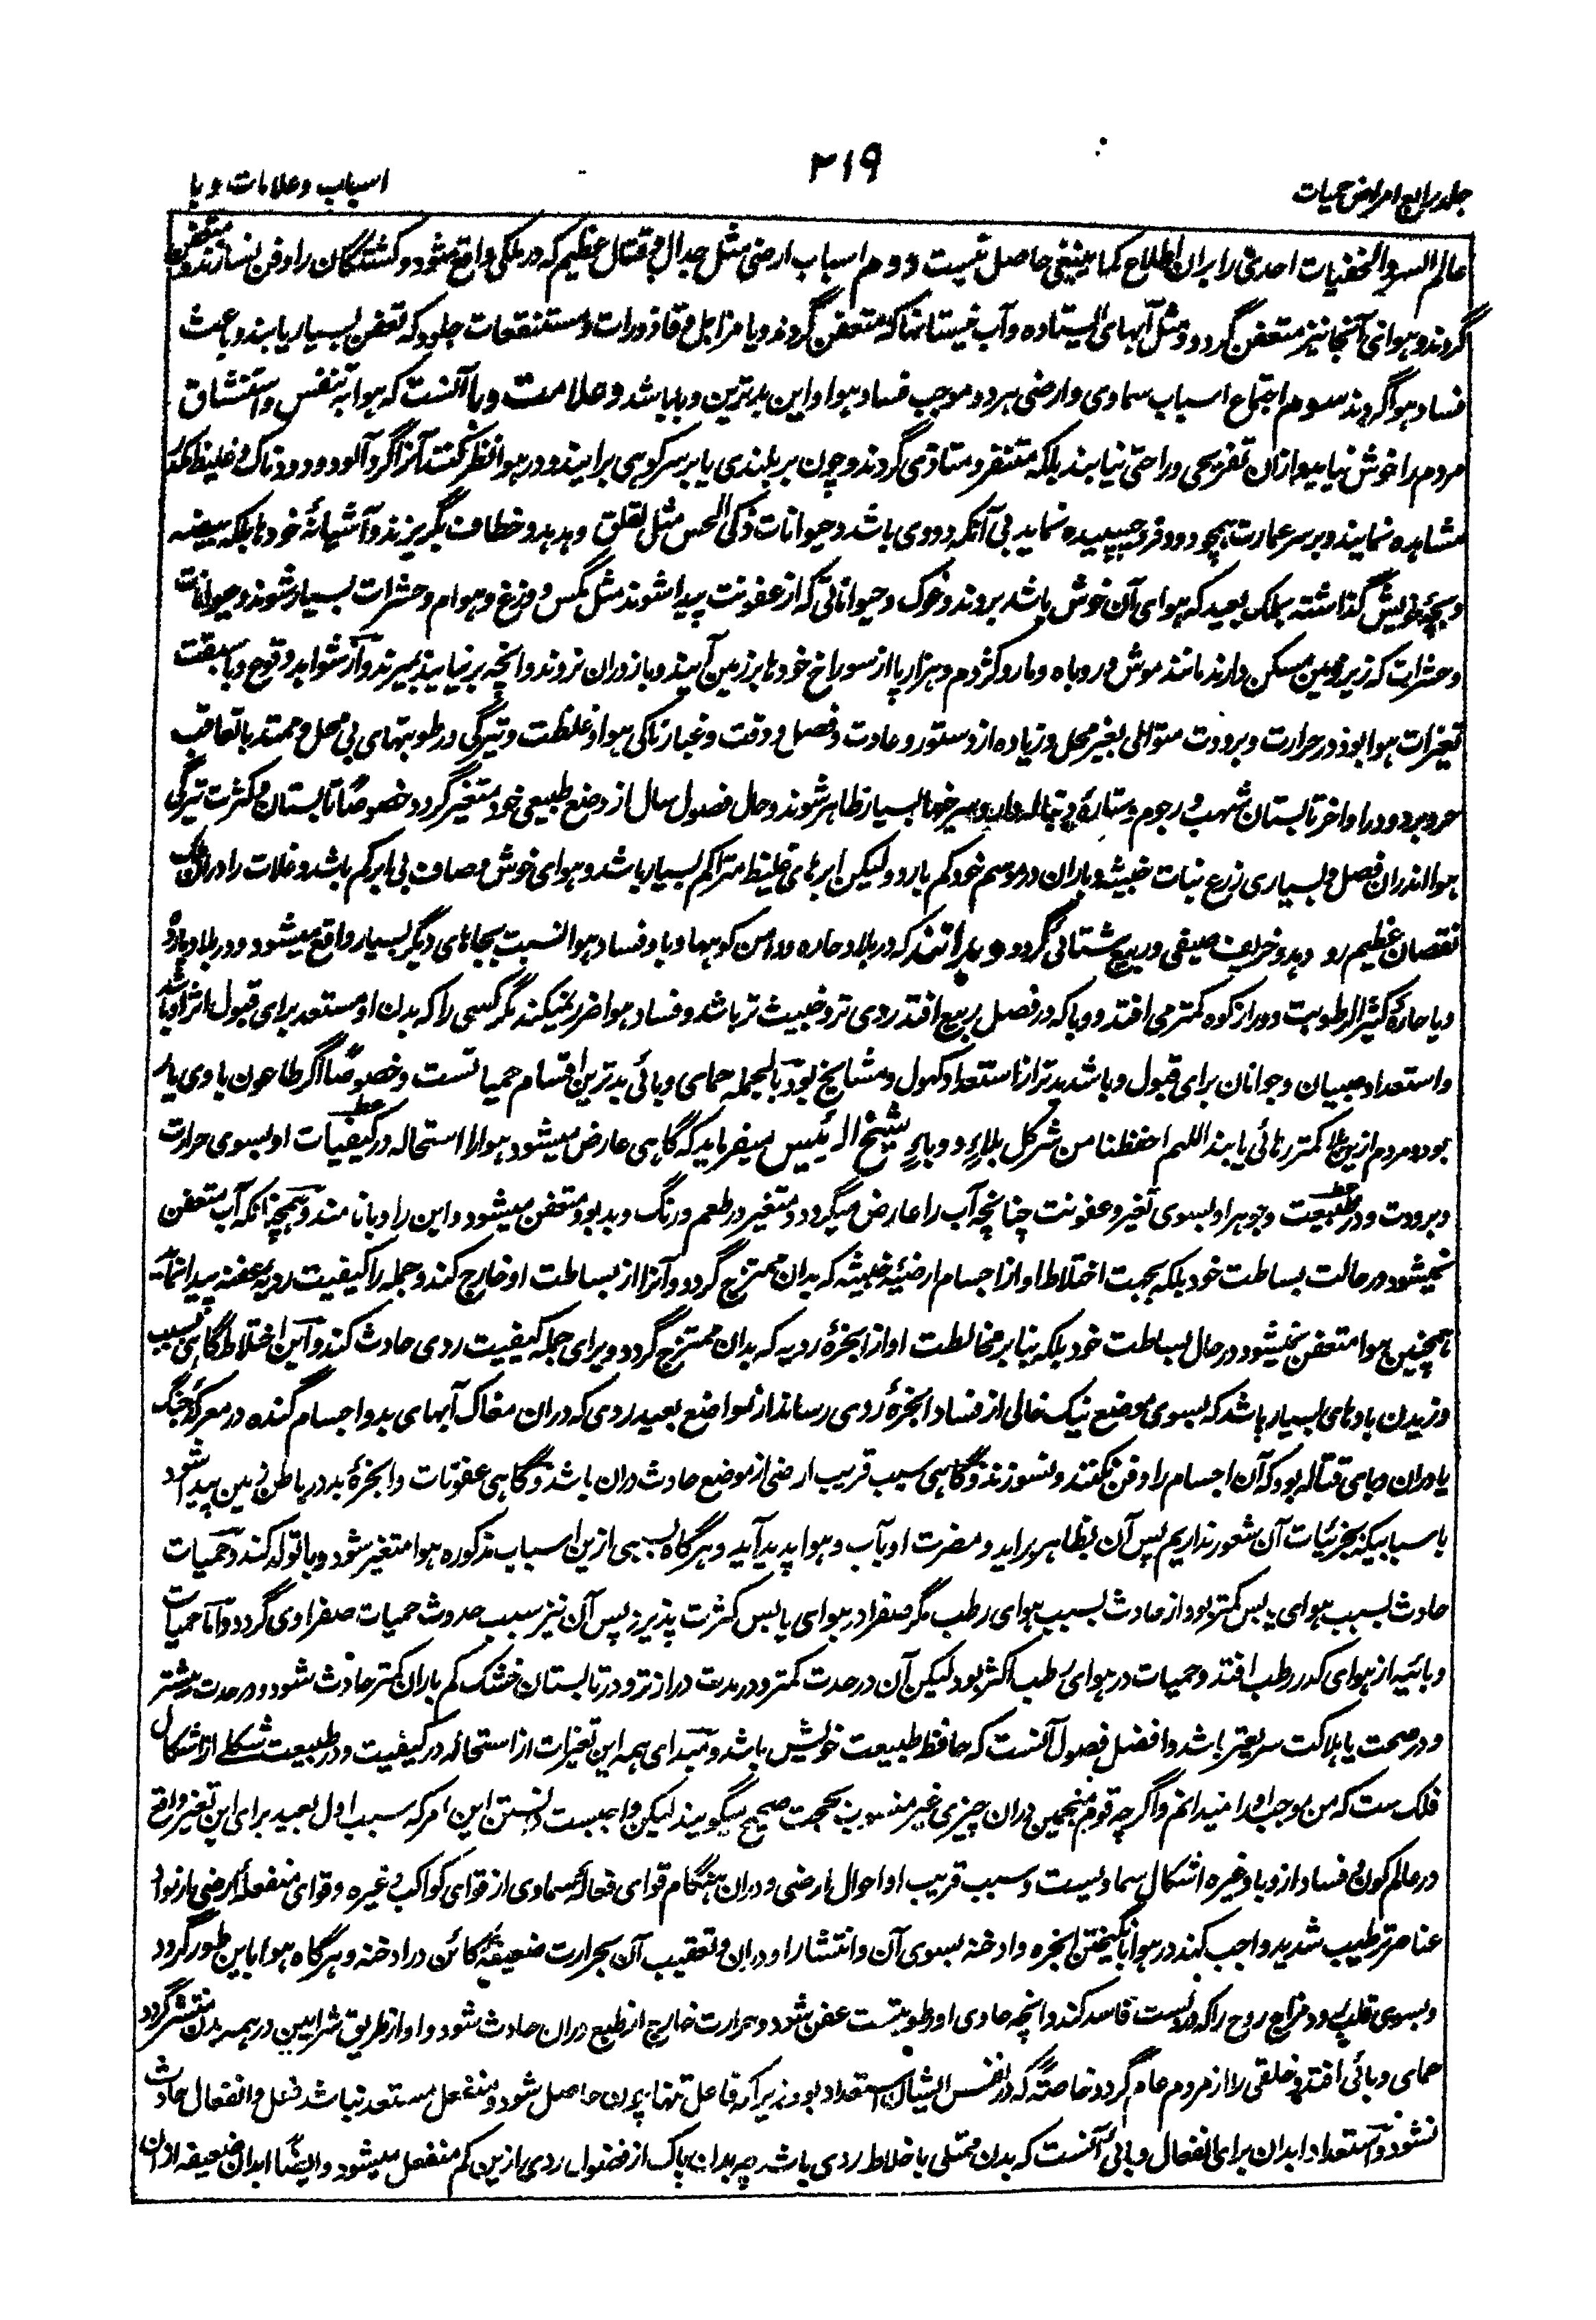 جلد رابع امراض حمیات
۲۱۹
اسباب و علامات وبا
عالم السر والخفیات احدی را بران اطلاع کما ینبغی حاصل نیست دوم اسباب ارضی مثل جدال و قتال عظیم که در ملکی واقع شود و کشتگان را دفن نسازند و متعفن
گردند و هوای آنجا نیز متعفن گردد و مثل آبهای ایستاده و آب نیستانها که متعفن گردند و یا مزابل و قاذورات و مستنقعات جلود که تعفن بسیار یابند و باعث
فساد هوا گردند سوم اجتماع اسباب سماوی و ارضی هر دو موجب فساد هوا و این بدترین وبا باشد و علامت وبا آنست که هوا به تنفس و استنشاق
مردم را خوش نیاید و ازان تفریحی و راحتی نیابند بلکه متنفر و متاذی گردند و چون بر بلندی یا بر سر کوهی برایند و در هوا نظر کنند آنرا گرد آلود و دود ناک و غلیظ
مشاهده نمایند و بر سر عمارت همچو دود فرو چسپیده نماید بی آنکه دودی باشد و حیوانات ذکی الحس مثل لقلق و هدهد و خطاف بگریزند و آشیانهٔ خودها بلکه بیضه
و بچهٔ خویش گذاشته بملک بعید که هوای آن خوش باشد بروند و غوک و حیواناتی که از عفونت پیدا شوند مثل مگس و وزغ و هوام و حشرات بسیار شوند و حیوانات
و حشرات که زیر زمین مسکن دارند مانند موش و روباه و مار و کژدم و هزارپا از سوراخ خودها بر زمین آیند و باز دران نروند و آنچه بر نیایند بمیرند و از شواهد وقوع وبا سبقت
تغیرات هوا بود در حرارت و برودت متوالی بغیر محل و زیاده از دستور و عادت و فصل و وقت و غبارناکی هوا و غلظت و تیرگی و رطوبتهای بی محل و ممتد یا تعاقب
حر و برد و در اواخر تابستان شهب و رجوم و ستارهٔ دنباله دار و سرخیها بسیار ظاهر شوند و حال فصول سال از وضع طبیعی خود متغیر گردد خصوصًا تابستان و کثرت تیرگی
هوا اندران فصل و بسیاری زرع نبات خبیثه و باران در موسم خود کم بارد و لیکن ابرهای غلیظ متراکم بسیار باشد و هوای خوش و صاف بی ابر کم باشد و غلات را دران
نقصان عظیم رو دهد و خریف صیفی و ربیع شتائی گردد و بدانند که در بلاد حاره و دامن کوهها وبا و فساد هوا نسبت بجاهای دیگر بسیار واقع میشود و در بلاد بارد
و یا حارهٔ کثیر الرطوبت و دور از کوه کمتر می افتد و وبا که در فصل ربیع افتد ردی تر و خبیث تر باشد و فساد هوا ضرر نمیکند مگر کسی را که بدن او مستعد برای قبول اثر او باشد
و استعداد صبیان و جوانان برای قبول وبا شدید تر از استعداد کهول و مشایخ بود بالجمله حمای وبائی بدترین اقسام حمیاتست و خصوصًا اگر طاعون با وی یار
بود و مردم ازین بلا کمتر رهائی یابند اللهم احفظنا من شر کل بلاء و وباء شیخ الرئیس میفرماید که گاهی عارض میشود هوا را استحاله در کیفیات او بسوی حرارت
و برودت و در طبیعت و جوهر او بسوی تغیر و عفونت چنانچه آب را عارض میگردد و متغیر در طعم و رنگ و بد بو و متعفن میشود و این را وبا نامند و همچنانکه آب متعفن
نمیشود در حالت بساطت خود بلکه بجهت اختلاط او از اجسام ارضیهٔ خبیثه که بدان ممتزج گردد و آنرا از بساطت او خارج کند و جمله را کیفیت ردیه عفنه پیدا نماید
همچنین هوا متعفن نمیشود در حال بساطت خود بلکه بنا بر مخالطت او از ابخرهٔ ردیه که بدان ممتزج گردد و برای جمله کیفیت ردی حادث کند و این اختلاط گاهی بسبب
وزیدن بادهای بسیار باشد که بسوی موضع نیک خالی از فساد ابخرهٔ ردی رساند از مواضع بعید ردی که دران مغاک آبهای بد و اجسام گنده در معرکهٔ جنگ
یا دران وبای قتاله بود که آن اجسام را دفن نکنند و نسوزند و گاهی سبب قریب ارضی از موضع حادث دران باشد و گاهی عفونات و ابخرهٔ بد در باطن زمین پیدا شود
باسبابیکه بجزئیات آن شعور نداریم پس آن بظاهر براید و مضرت او بآب و هوا پدید آید و هرگاه بسببی ازین اسباب مذکوره هوا متغیر شود وبا تولد کند و حمیات
حادث بسبب هوای یابس کمتر بود از حادث بسبب هوای رطب مگر صفرا در هوای یابس کثرت پذیرد پس آن نیز سبب حدوث حمیات صفراوی گردد و اما حمیات
وبائیه از هوای کدر رطب افتد و حمیات در هوای رطب اکثر بود لیکن آن در حدت کمتر و در مدت دراز تر و در تابستان خشک کم باران کمتر حادث شود و در حدت بیشتر
و در صحت یا هلاکت سریعتر باشد و افضل فصول آنست که حافظ طبیعت خویش باشد و مبدای همه این تغیرات از استحاله در کیفیت و در طبیعت شکلی از اشکال
فلک ست که من موجب او را نمیدانم و اگر چه قوم منجمین دران چیزی غیر منسوب بحجت صحیح میگویند لیکن واجبست دانستن این امر که سبب اول بعید برای این تغیر واقع
در عالم کون و فساد از وبا و غیره اشکال سماویست و سبب قریب او احوال ارضی و دران هنگام قوای فعالهٔ سماوی از قوای کواکب و غیره و قوای منفعلهٔ ارضی از قوای
عناصر ترطیب شدید واجب کند در هوا بانگیختن ابخره و ادخنه بسوی آن و انتشار او دران و تعقیب آن بحرارت ضعیفهٔ کائن در ادخنه و هرگاه هوا باین طور گردد
و بسوی قلب رود مزاج روح را که دروست فاسد کند و آنچه حاوی او رطوبتست عفن شود و حرارت خارج از طبع دران حادث شود و او از طریق شرایین در همه بدن منتشر گردد
حمای وبائی افتد و خلقی را از مردم عام گردد خاصةً که در نفس ایشان استعداد بود زیرا که فاعل تنها چون حاصل شود و منفعل مستعد نباشد فعل و انفعال حادث
نشود و استعداد ابدان برای انفعال وبائی آنست که بدن ممتلی باخلاط ردی باشد چه بدان پاک از فضول ردی ازین کم منفعل میشود و ایضًا ابدان ضعیفه ازان